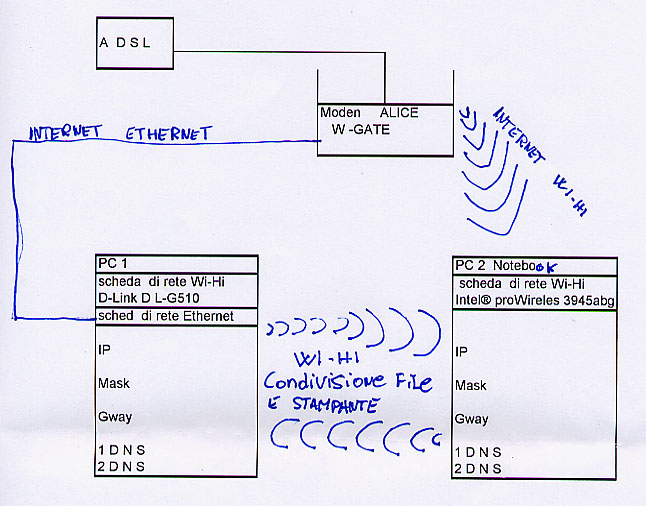 A D S L
Moden ALICE
W -GATE
INTERNET ETHERNET
INTERNET WI-HI
PC 1
scheda di rete Wi-Hi
D-Link D L-G510
sched di rete Ethernet
IP
Mask
Gway
1 D N S
2 D N S
WI-HI
Condivisione File
E STAMPANTE
PC 2 Notebook
scheda di rete Wi-Hi
Intel® proWireles 3945abg
IP
Mask
Gway
1 D N S
2 D N S